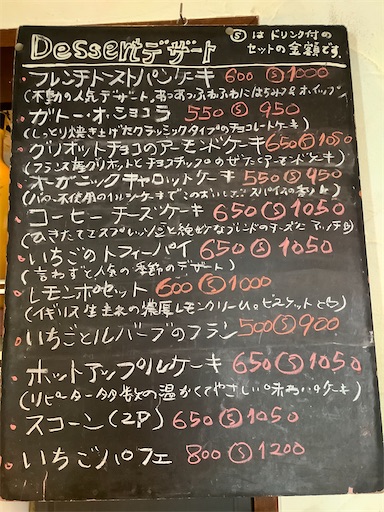 Dessertデザート
Ⓢはドリンク付の
セットの金額です。
フレンチトーストパンケーキ 600 Ⓢ1000
(不動の人気デザート。あつあつふわふわにはちみつ&ホイップ
ガトー・オ・ショコラ 550 Ⓢ 950
(しっとり焼き上げたクラッシックタイプのチョコレートケーキ)
グリオットチョコのアーモンドケーキ 650Ⓢ1050
(フランス産グリオットとチョコチップのせたアーモンドケーキ)
オーガニックキャロットケーキ 550 Ⓢ 950
(バター不使用の
コーヒーチーズケーキ 650Ⓢ1050
(ひきたてエスプレッソと絶妙なブレンドのチーズ
いちごのトフィーパイ 650Ⓢ1050
(言わずと人気の季節のデザート)
レモンポセット 600Ⓢ1000
(イギリス生まれの濃厚レモンクリーム。ビスケットと)
いちごとルバーブのフラン 500Ⓢ900
ホットアップルケーキ 650Ⓢ1050
(リピーター多数の温かくてやさしい味わいケーキ)
スコーン(2P) 650Ⓢ1050
いちごパフェ 800Ⓢ1200